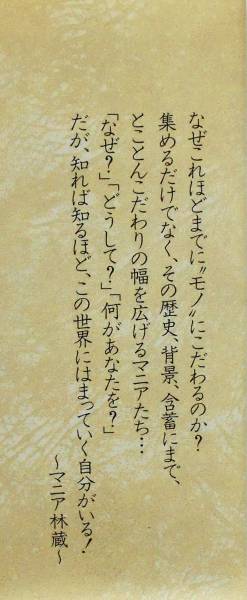 なぜこれほどまでに〝モノ〟にこだわるのか?
集めるだけでなく、その歴史、背景、含蓄にまで、
とことんこだわりの幅を広げるマニアたち…
「なぜ?」「どうして?」「何があなたを?」
だが、知れば知るほど、この世界にはまっていく自分がいる!
～マニア林蔵～